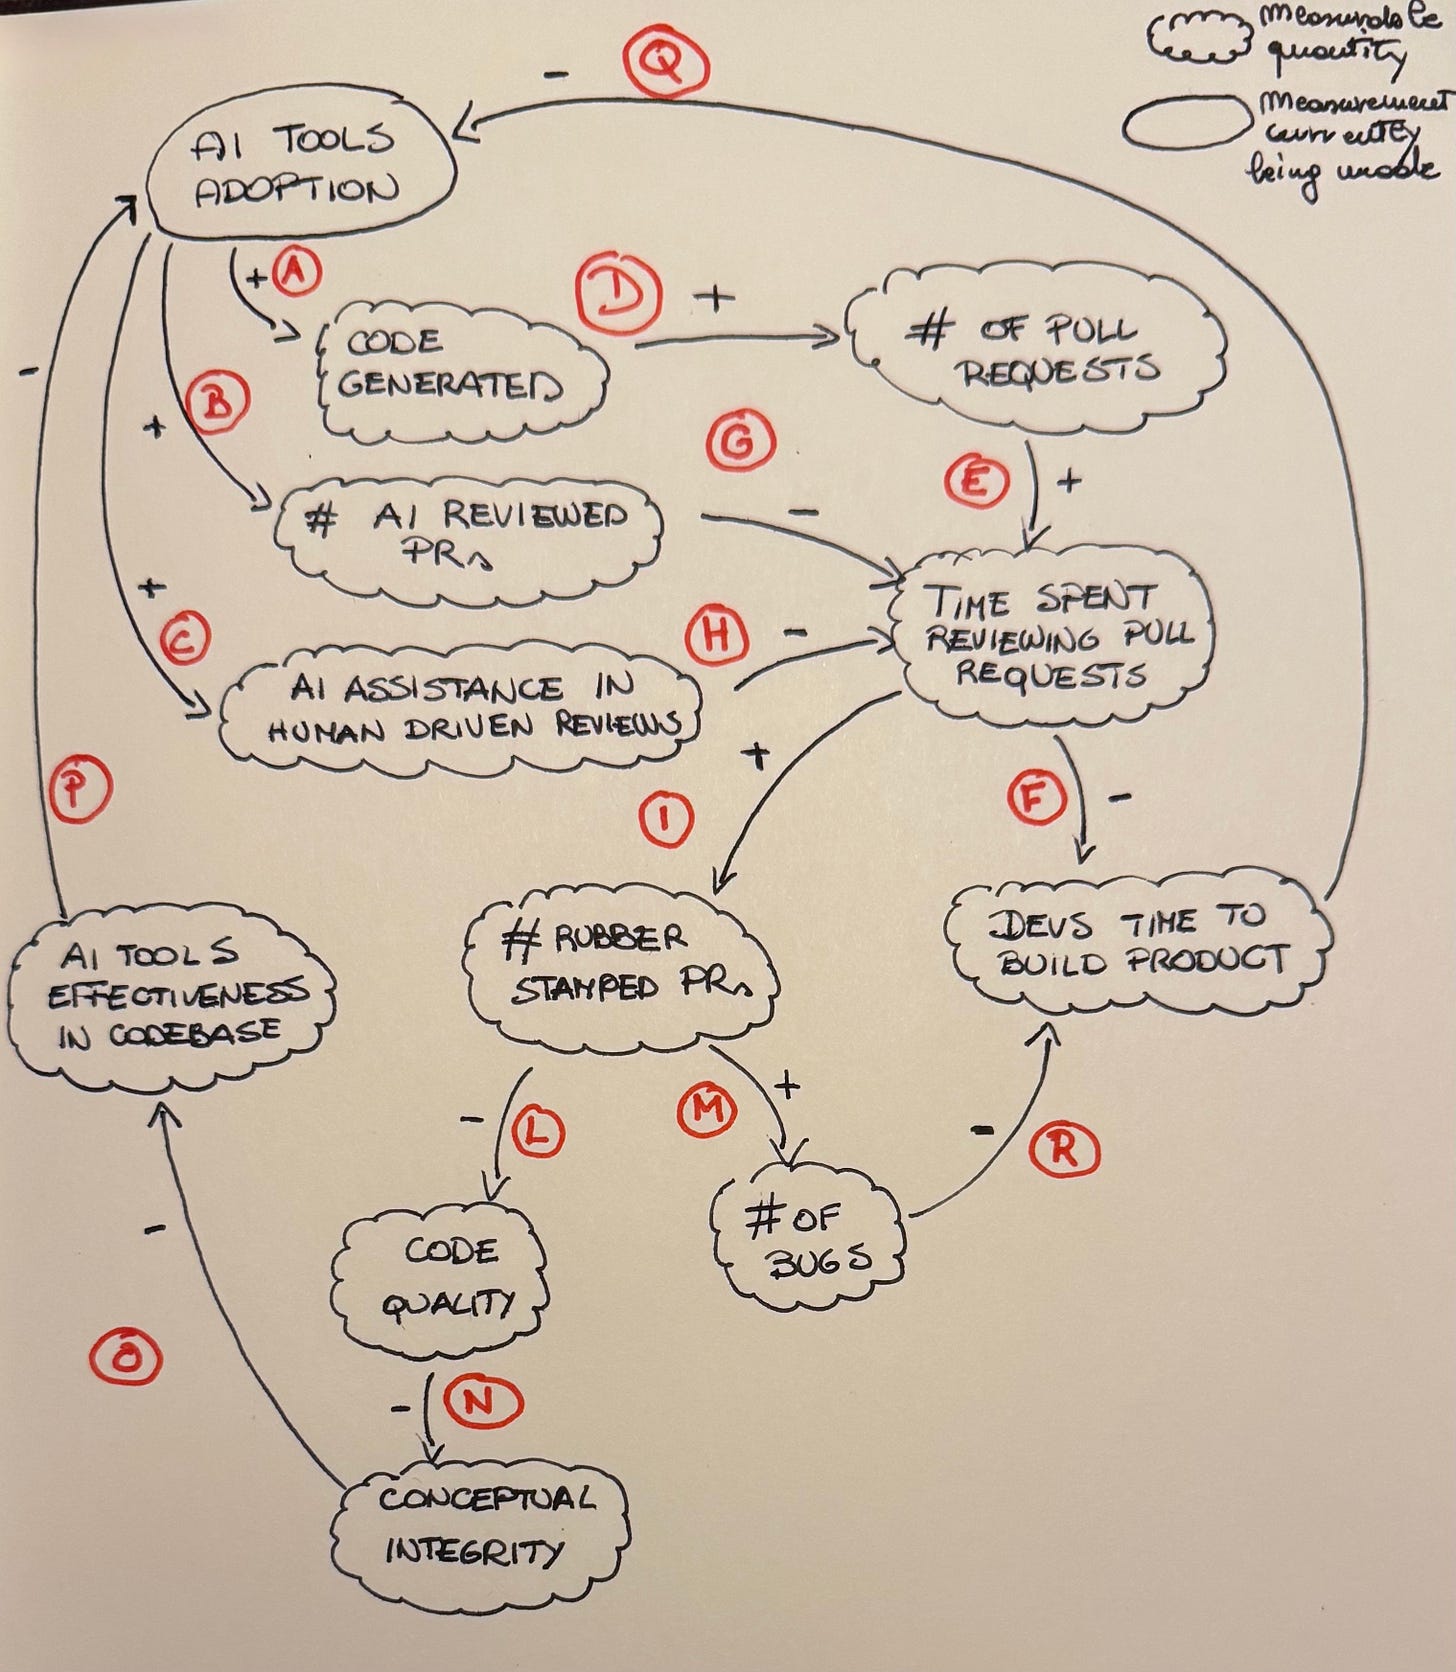 measurable
quantity
measurement
currently
being made
Q
-
AI TOOLS
ADOPTION
+ A
D +
# OF PULL
REQUESTS
CODE
GENERATED
-
B
+
G
-
E +
# AI REVIEWED
PRs
+
C
H -
TIME SPENT
REVIEWING PULL
REQUESTS
AI ASSISTANCE IN
HUMAN DRIVEN REVIEWS
P
+
I
F -
AI TOOLS
EFFECTIVENESS
IN CODEBASE
# RUBBER
STAMPED PRs
DEVS TIME TO
BUILD PRODUCT
- L
M +
- R
CODE
QUALITY
# OF
BUGS
-
O
- N
CONCEPTUAL
INTEGRITY